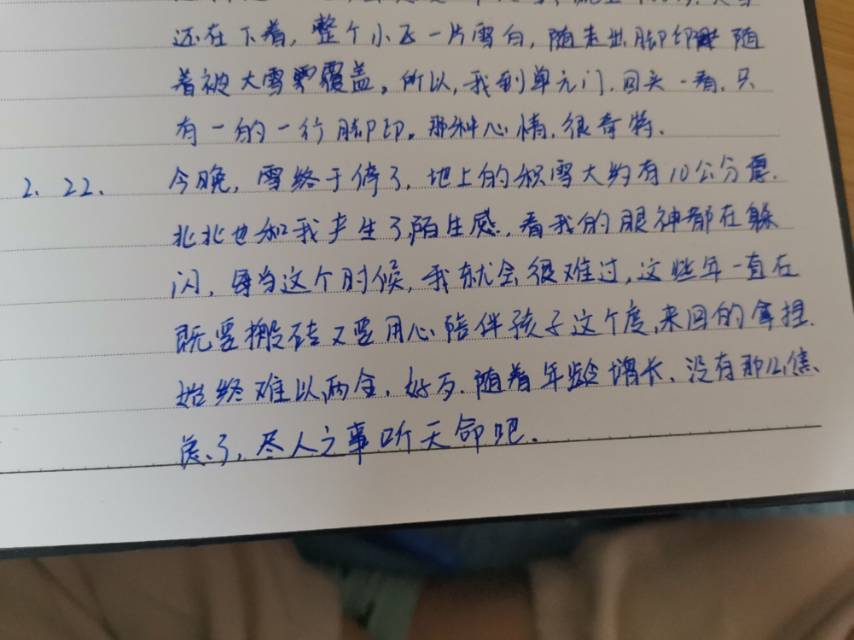 还在下着，整个小区一片雪白，随走出脚印随
着被大雪覆盖。所以，我到单元门，回头一看，只
有一的一行脚印。那种心情，很奇特。
2.22. 今晚，雪终于停了，地上的积雪大约有10公分厚.
北北也和我产生了陌生感，看我的眼神都在躲
闪，每当这个时候，我就会很难过，这些年一直在
既要搬砖又要用心陪伴孩子这个度，来回的拿捏.
始终难以两全，好歹，随着年龄增长，没有那么焦
急了，尽人之事听天命吧。